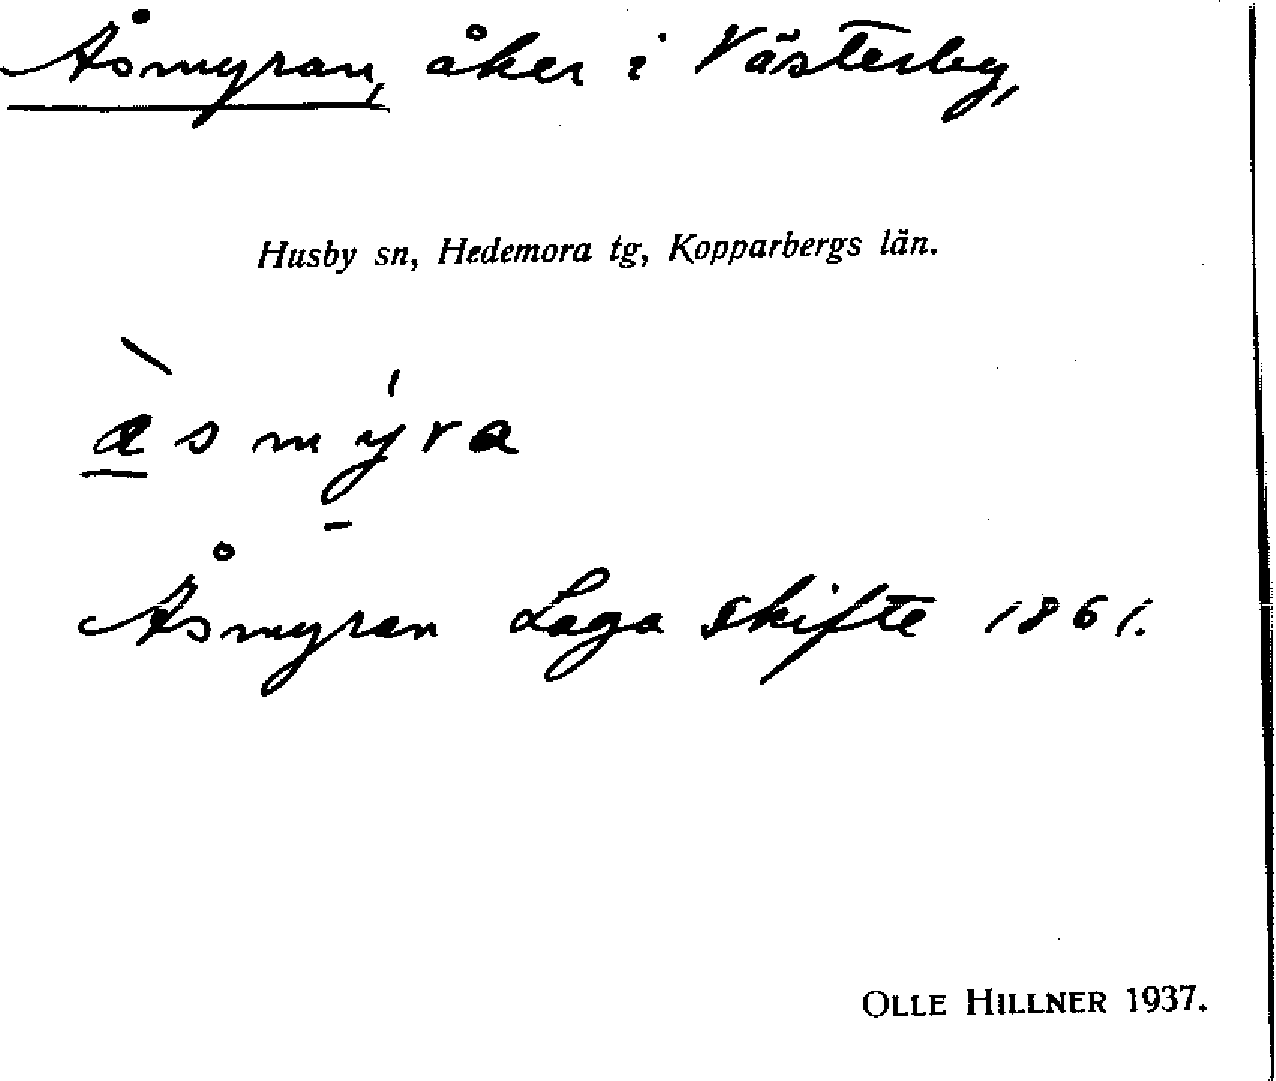 Åsmyran, åker i Västerby,
Husby sn, Hedemora tg, Kopparbergs län.
æ̀smýra
Åsmyran Laga skifte 1861.
OLLE HILLNER 1937.